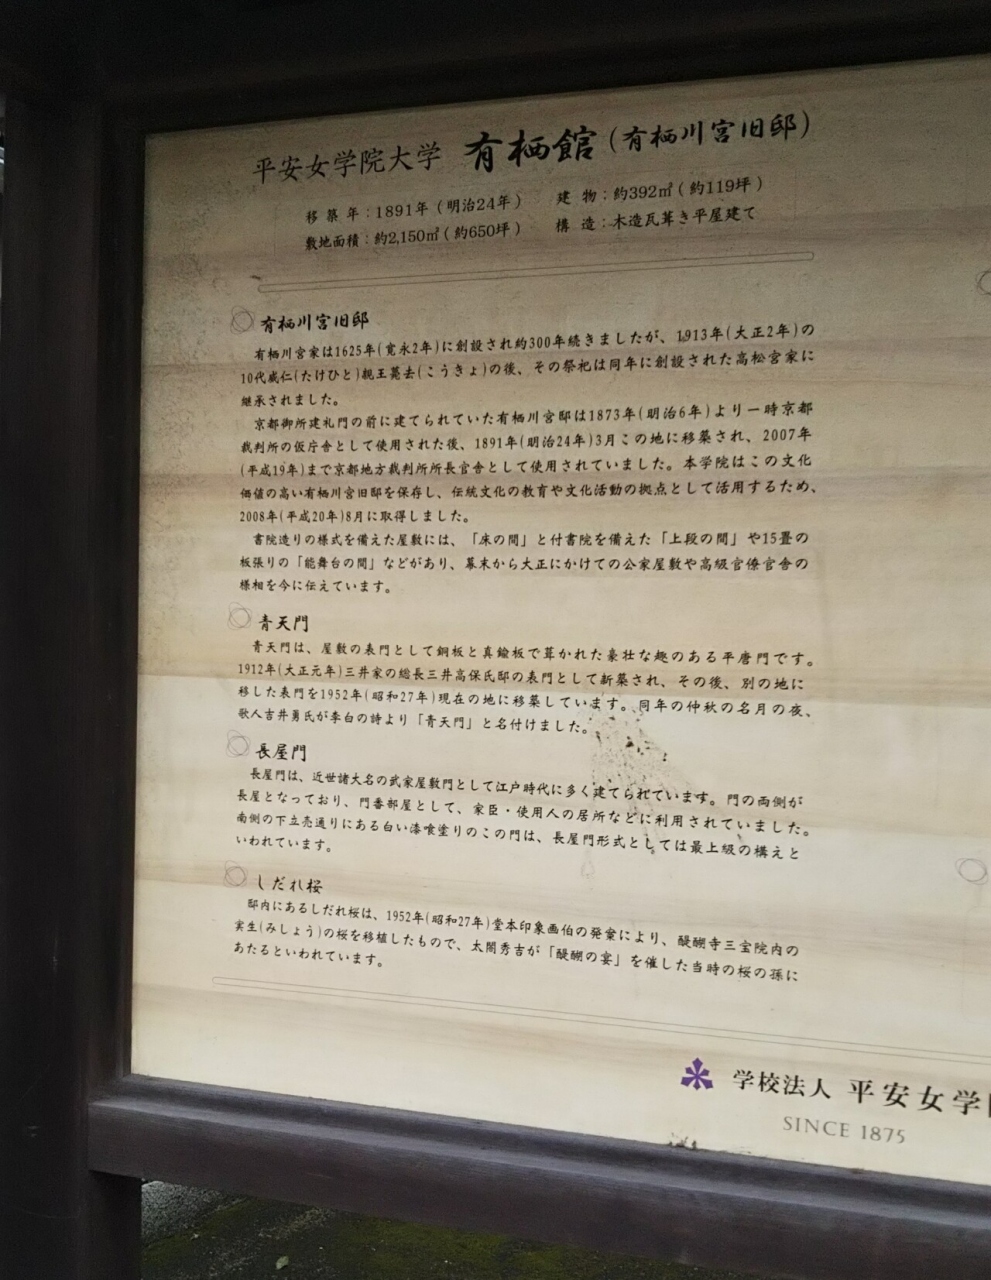 平安女学院大学 有栖館(有栖川宮旧邸)
移築年:1891年(明治24年) 建物:約392㎡(約119坪)
敷地面積:約2,150㎡(約650坪) 構造:木造瓦葺き平屋建て
有栖川宮旧邸
有栖川宮家は1625年(寛永2年)に創設され約300年続きましたが、1913年(大正2年)の
10代威仁(たけひと)親王薨去(こうきょ)の後、その祭祀は同年に創設された高松宮家に
継承されました。
京都御所建礼門の前に建てられていた有栖川宮邸は1873年(明治6年)より一時京都
裁判所の仮庁舎として使用された後、1891年(明治24年)3月この地に移築され、2007年
(平成19年)まで京都地方裁判所所長官舎として使用されていました。本学院はこの文化
価値の高い有栖川宮旧邸を保存し、伝統文化の教育や文化活動の拠点として活用するため、
2008年(平成20年)8月に取得しました。
書院造りの様式を備えた屋敷には、「床の間」と付書院を備えた「上段の間」や15畳の
板張りの「能舞台の間」などがあり、幕末から大正にかけての公家屋敷や高級官僚官舎の
様相を今に伝えています。
青天門
青天門は、屋敷の表門として銅板と真鍮板で葺かれた豪壮な趣のある平唐門です。
1912年(大正元年)三井家の総長三井高保氏邸の表門として新築され、その後、別の地に
移した表門を1952年(昭和27年)現在の地に移築しています。同年の仲秋の名月の夜、
歌人吉井勇氏が李白の詩より「青天門」と名付けました。
長屋門
長屋門は、近世諸大名の武家屋敷門として江戸時代に多く建てられています。門の両側が
長屋となっており、門番部屋として、家臣・使用人の居所などに利用されていました。
南側の下立売通りにある白い漆喰塗りのこの門は、長屋門形式としては最上級の構えと
いわれています。
しだれ桜
邸内にあるしだれ桜は、1952年(昭和27年)堂本印象画伯の発案により、醍醐寺三宝院内の
実生(みしょう)の桜を移植したもので、太閤秀吉が「醍醐の宴」を催した当時の桜の孫に
あたるといわれています。
学校法人 平安女学
SINCE 1875